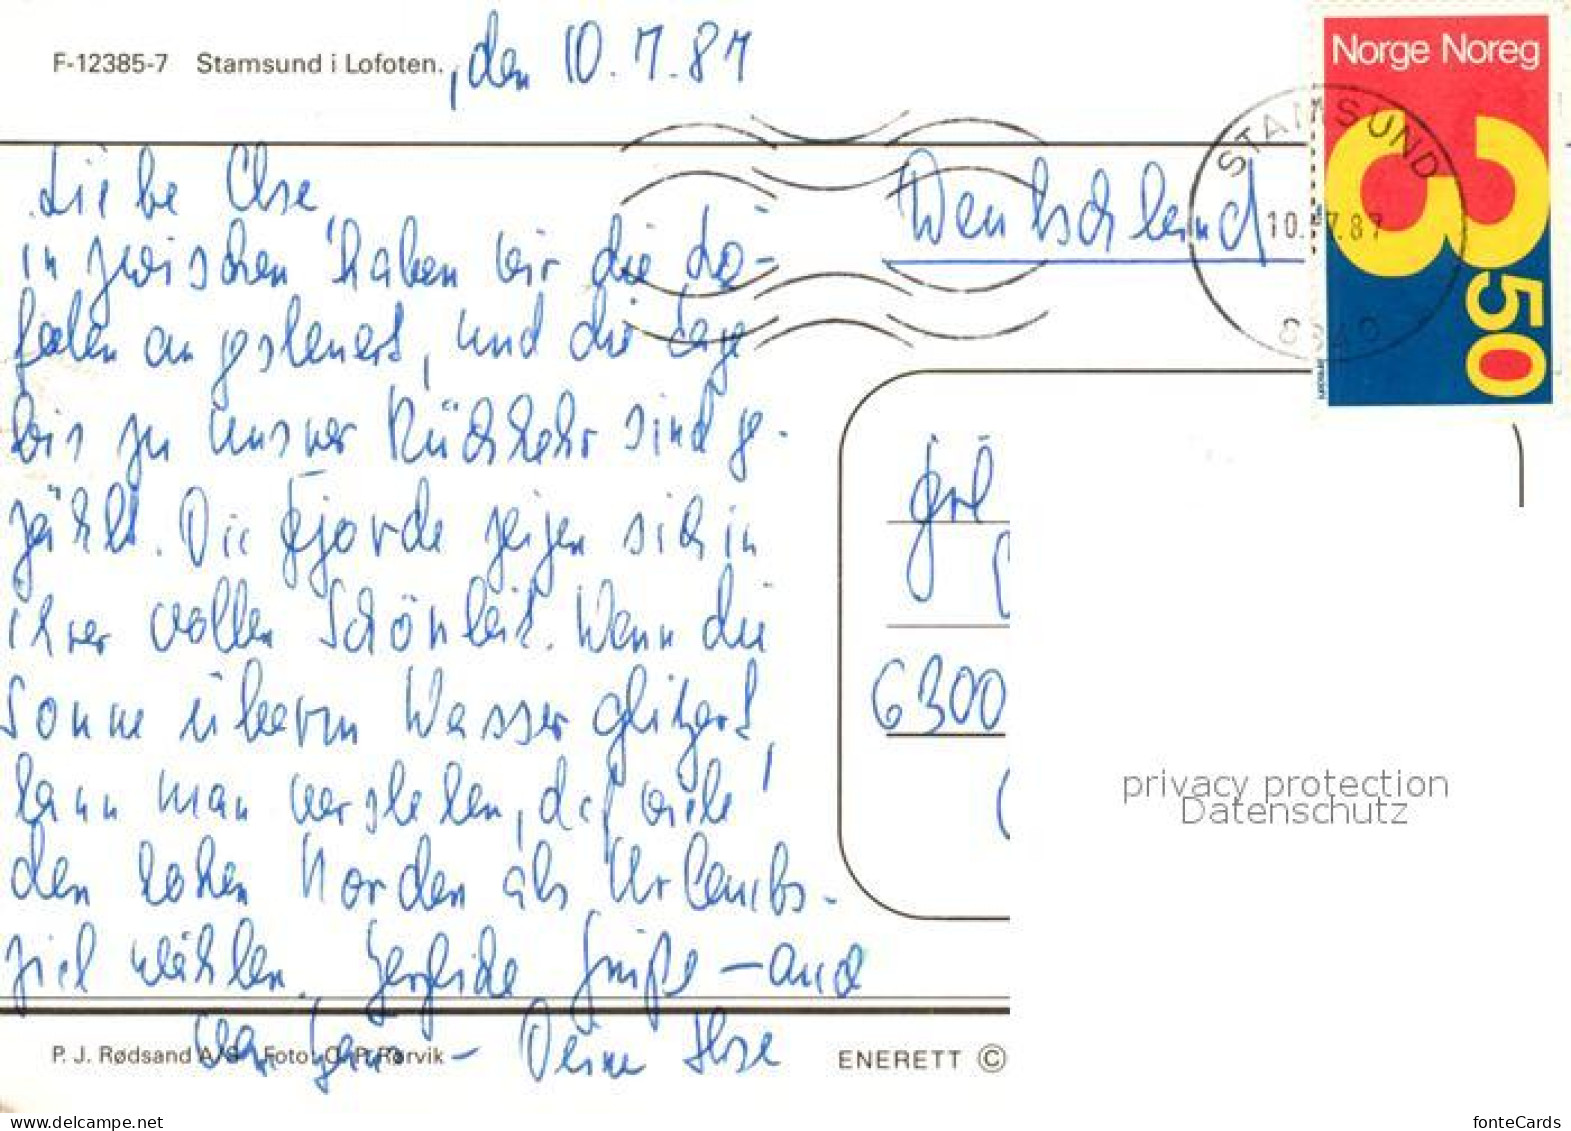 F-12385-7 Stamsund i Lofoten. , den 10.7.87
Norge Noreg
3 50
STAMSUND
10.-7.87
Liebe Else,
inzwischen haben wir die Lo-
foten angesteuert, und die Tage
bis zu unsrer Rückkehr sind ge-
zählt. Die Fjorde zeigen sich in
ihrer vollen Schönheit. Wenn die
Sonne überm Wasser glitzert,
kann man verstehen, daß viele
den hohen Norden als Urlaubs-
ziel wählen. Herzliche Grüße – auch
von – Deine Ilse
Deutschland
6300
privacy protection
Datenschutz
P. J. Rødsand A/S Foto: O. P. Rørvik
ENERETT ©
www.delcampe.net
fonteCards